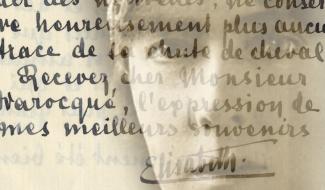 des nouvelles, ne conser
ve heureusement plus aucu
trace de sa chute de cheval
Recevez cher Monsieur
Warocqué, l'expression de
mes meilleurs souvenirs
Elisabeth.